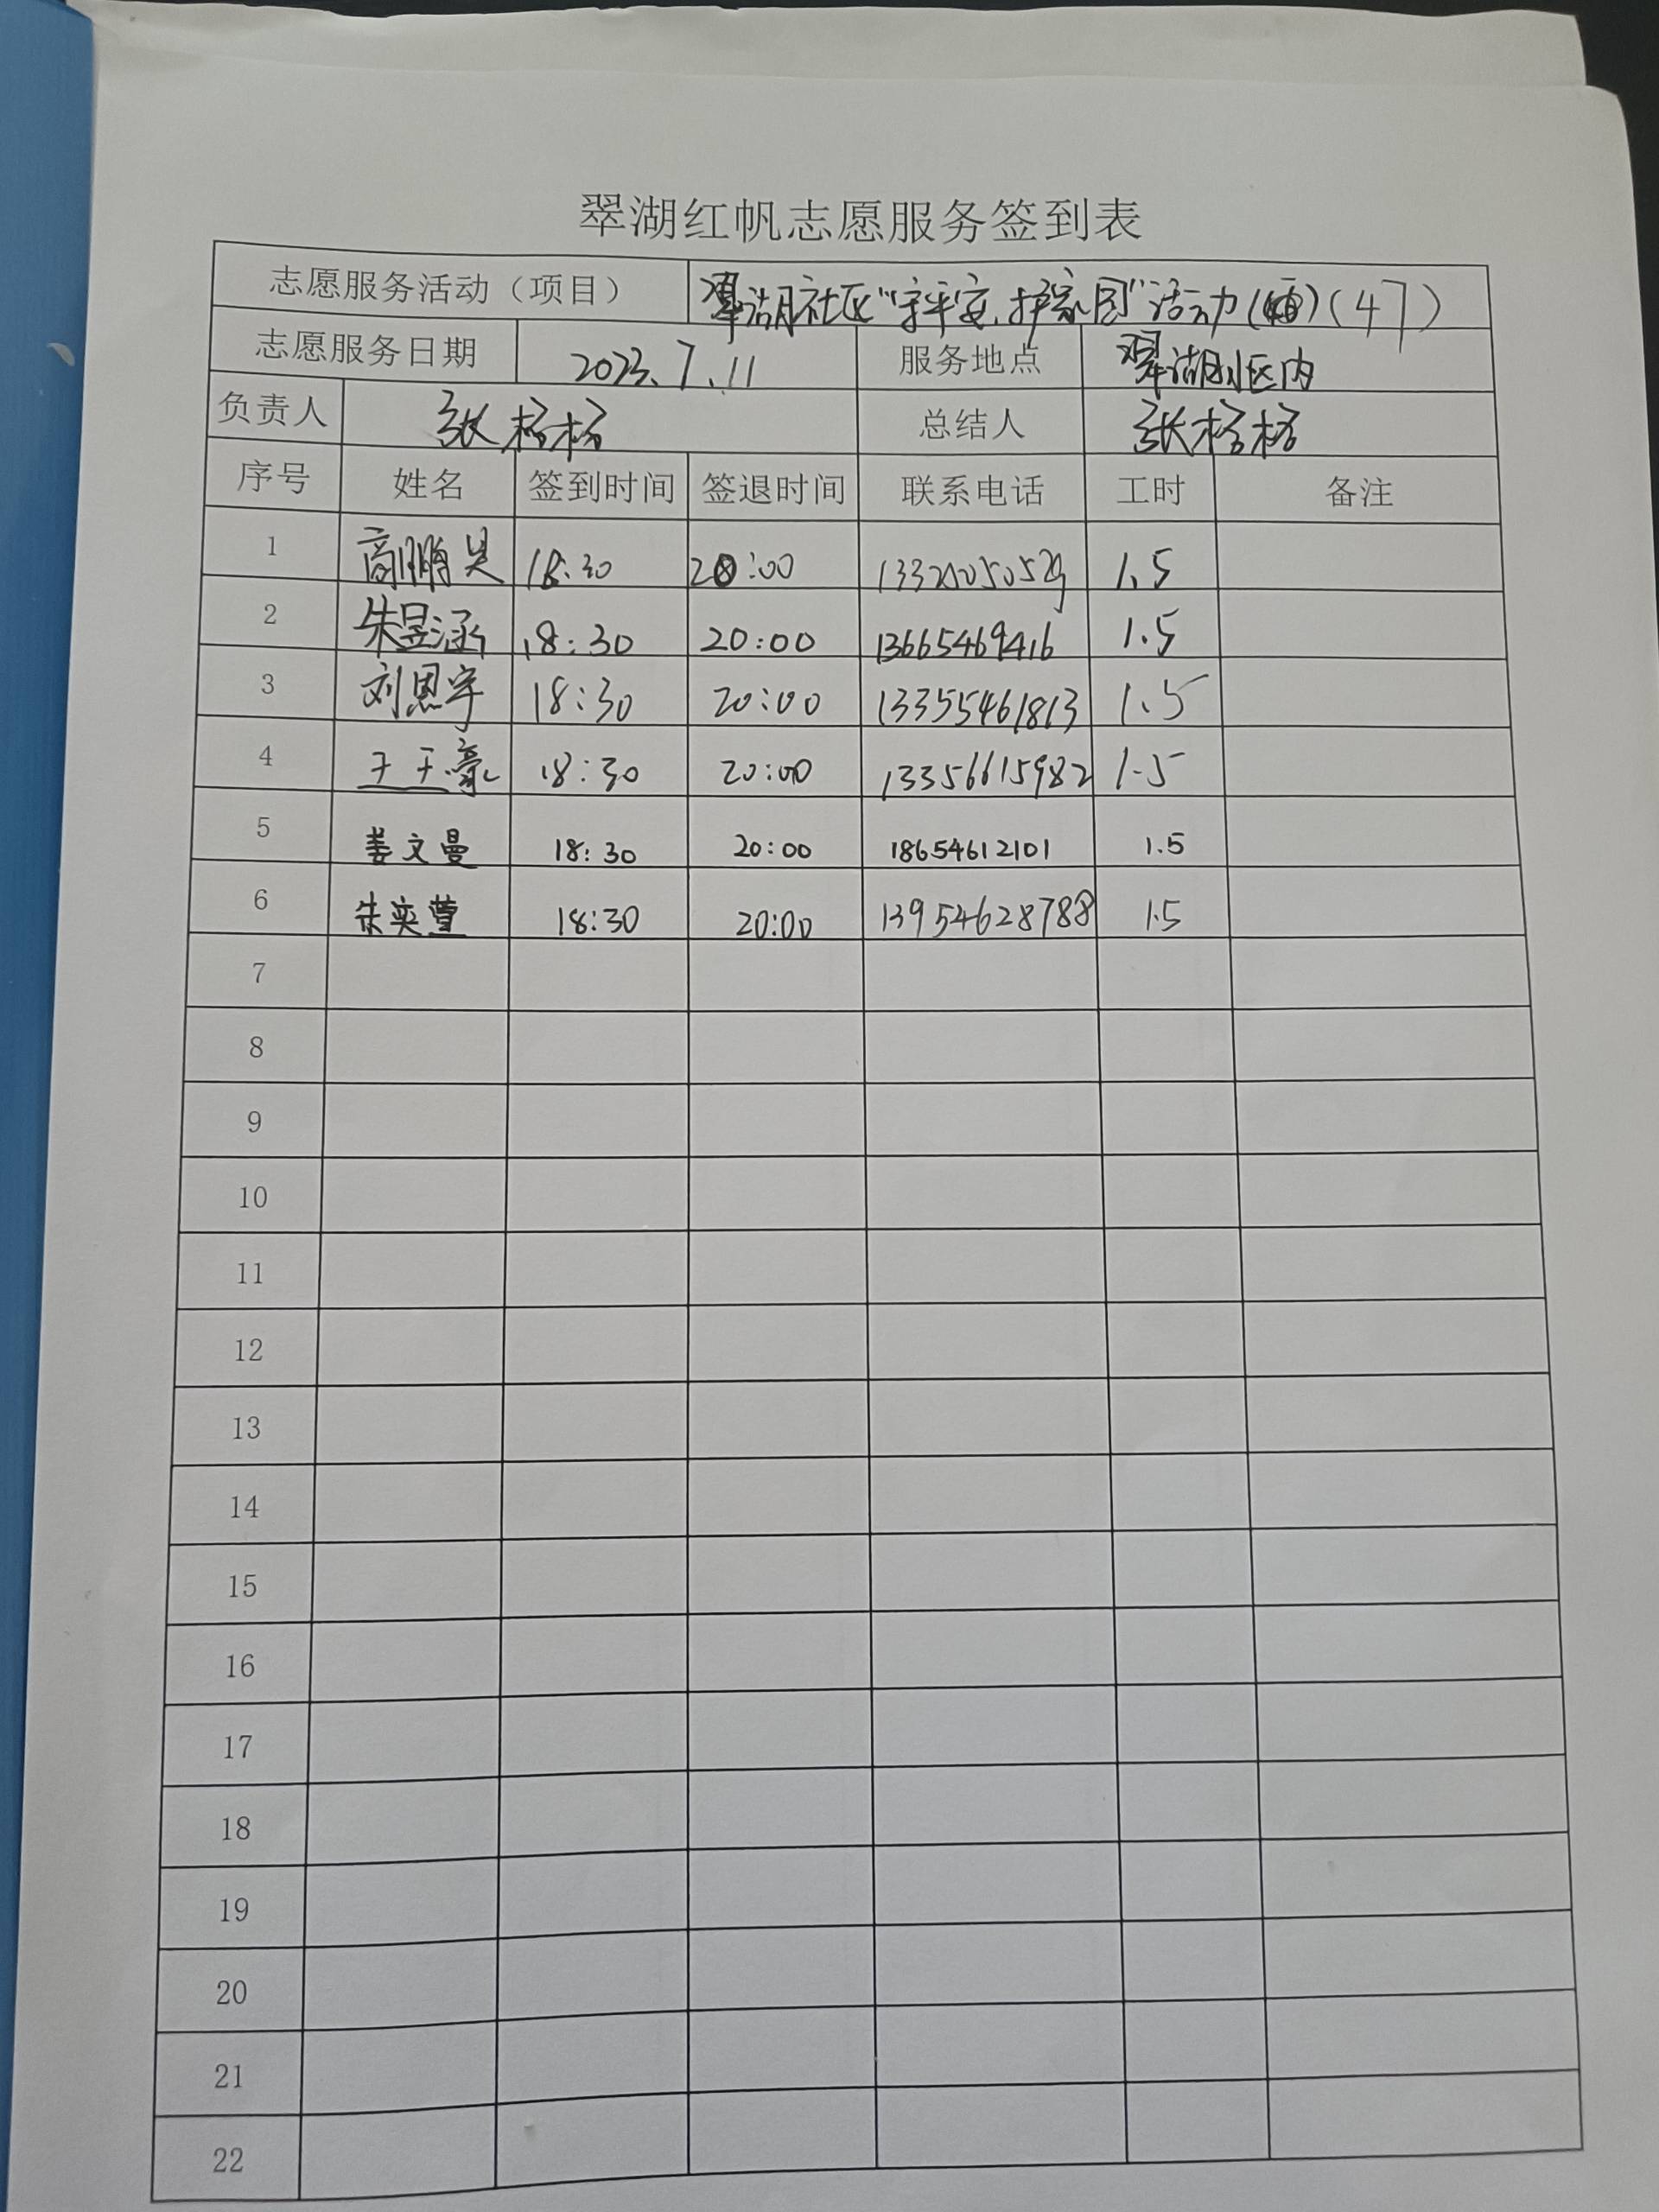 翠湖红帆志愿服务签到表
志愿服务活动（项目） 翠湖社区“守平安,护家园”活动 (47)
志愿服务日期 2023.7.11 服务地点 翠湖小区内
负责人 张格格 总结人 张格格
序号 姓名 签到时间 签退时间 联系电话 工时 备注
1 商鹏昊 18:30 20:00 1.5
2 朱昱涵 18:30 20:00 13665469416 1.5
3 刘恩宇 18:30 20:00 13355461813 1.5
4 18:30 20:00 13356615982 1.5
5 姜文曼 18:30 20:00 18654612101 1.5
6 朱奕萱 18:30 20:00 13954628788 1.5
7
8
9
10
11
12
13
14
15
16
17
18
19
20
21
22